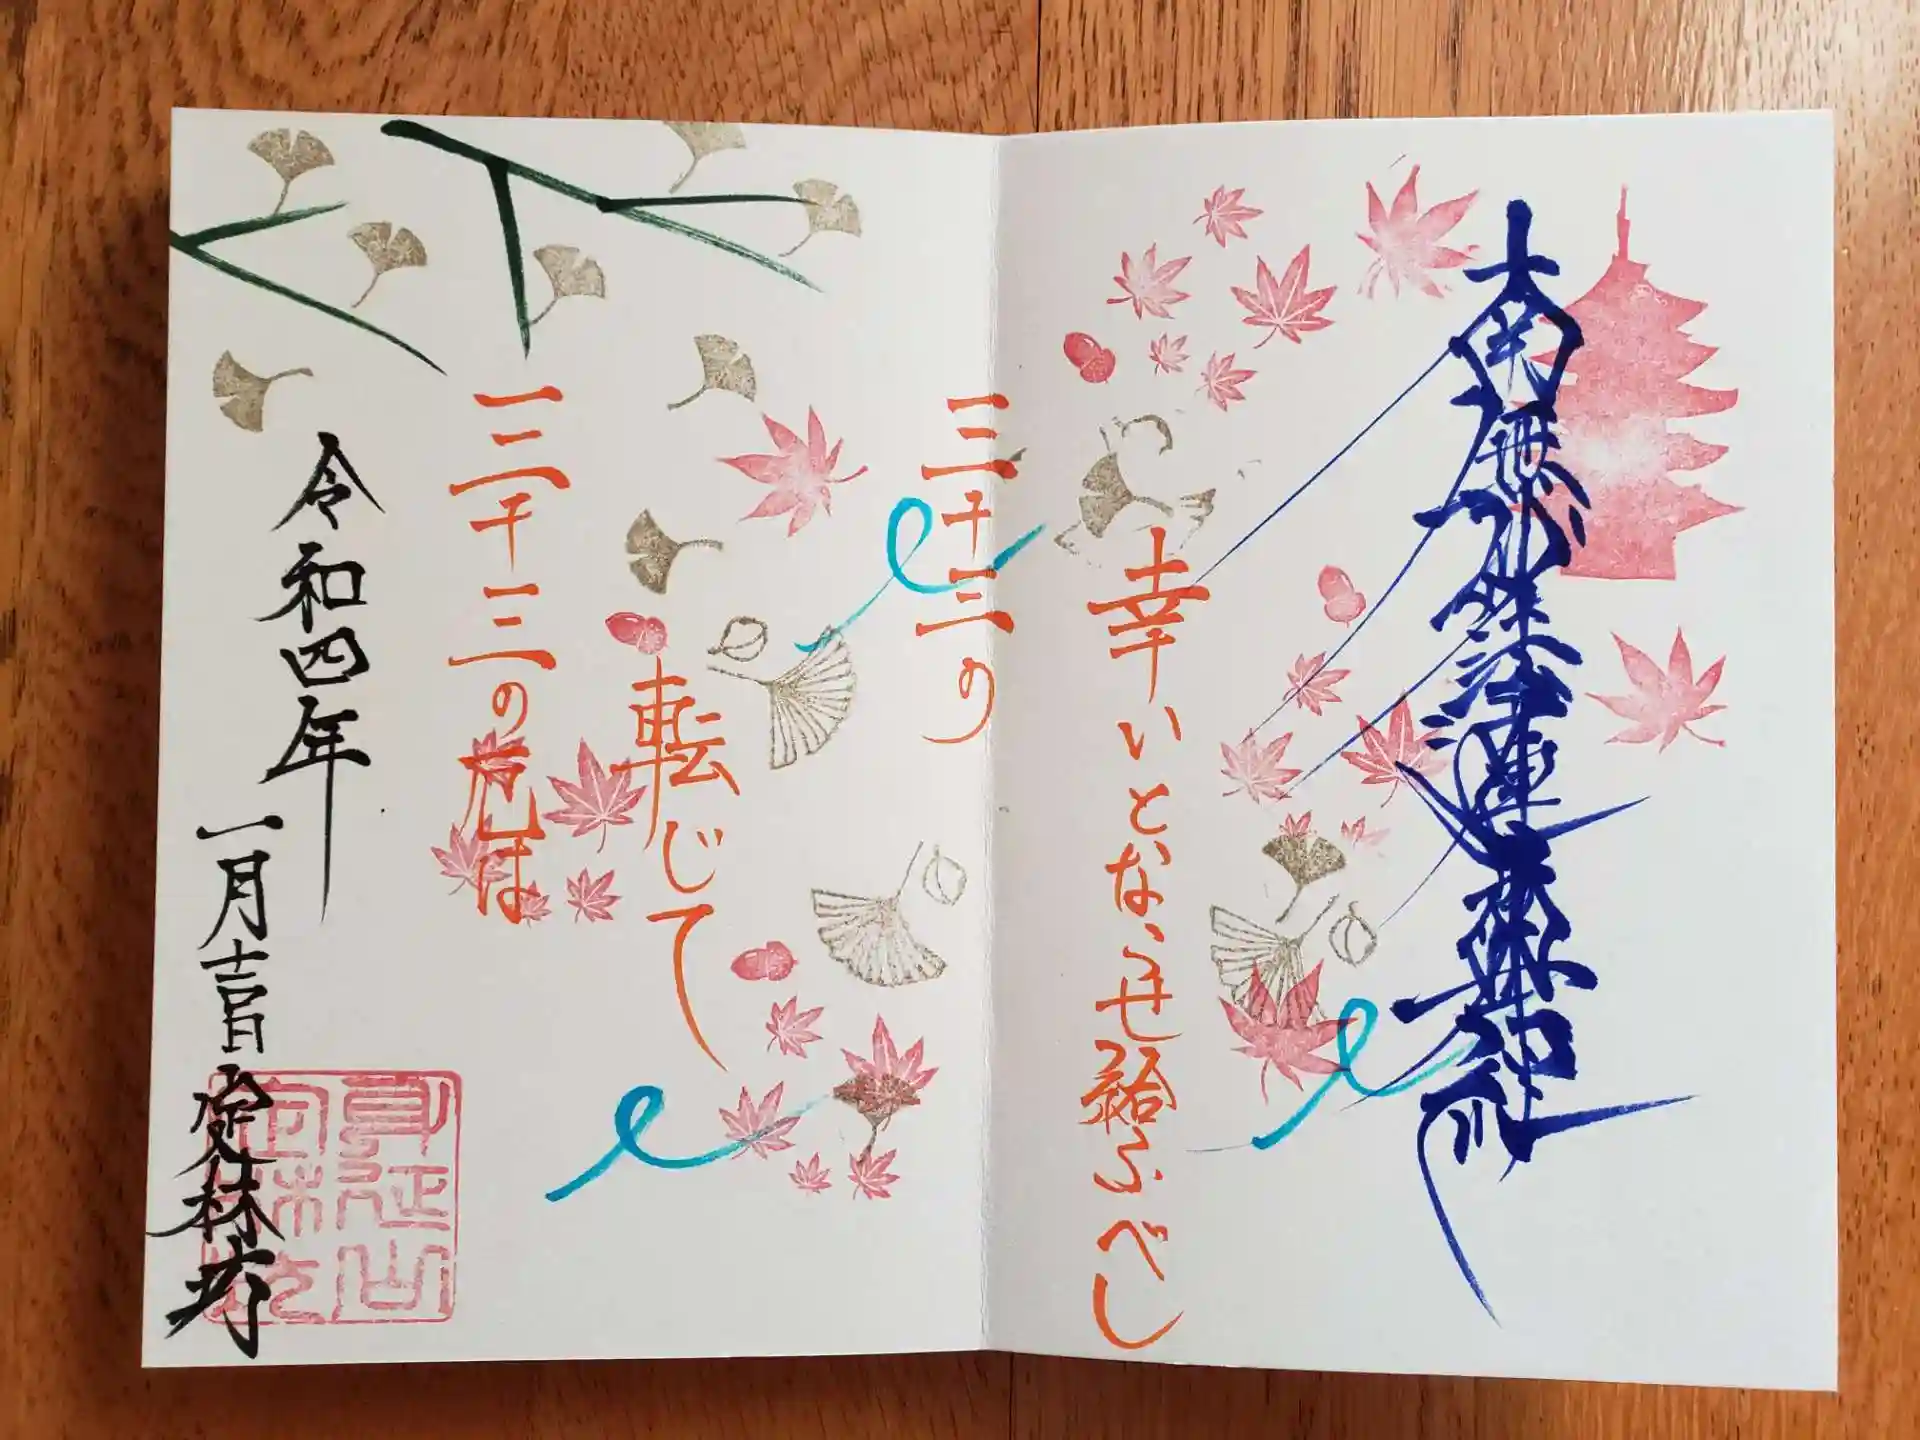 南無妙法蓮華経
三十三の厄は
転じて
三十三の
幸いとなさせ給ふべし
令和四年
一月吉日 定林坊
身延山
定林坊